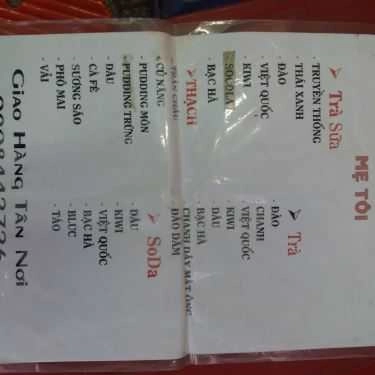 MẸ TÔI
Trà Sữa
TRUYỀN THỐNG
THÁI XANH
ĐÀO
VIỆT QUỐC
KIWI
SOCOLA
BẠC HÀ
THẠCH
TRÂN CHÂU
CỦ NĂNG
PUDDING MÔN
PUDDING TRỨNG
DÂU
CÀ FÊ
SƯƠNG SÁO
PHÔ MAI
VẢI
Trà
ĐÀO
CHANH
VIỆT QUỐC
KIWI
DÂU
BẠC HÀ
CHANH DÂY MẬT ONG
ĐÀO DẦM
SoDa
DÂU
KIWI
VIỆT QUỐC
BẠC HÀ
BLUC
TÁO
Giao Hàng Tân Nơi